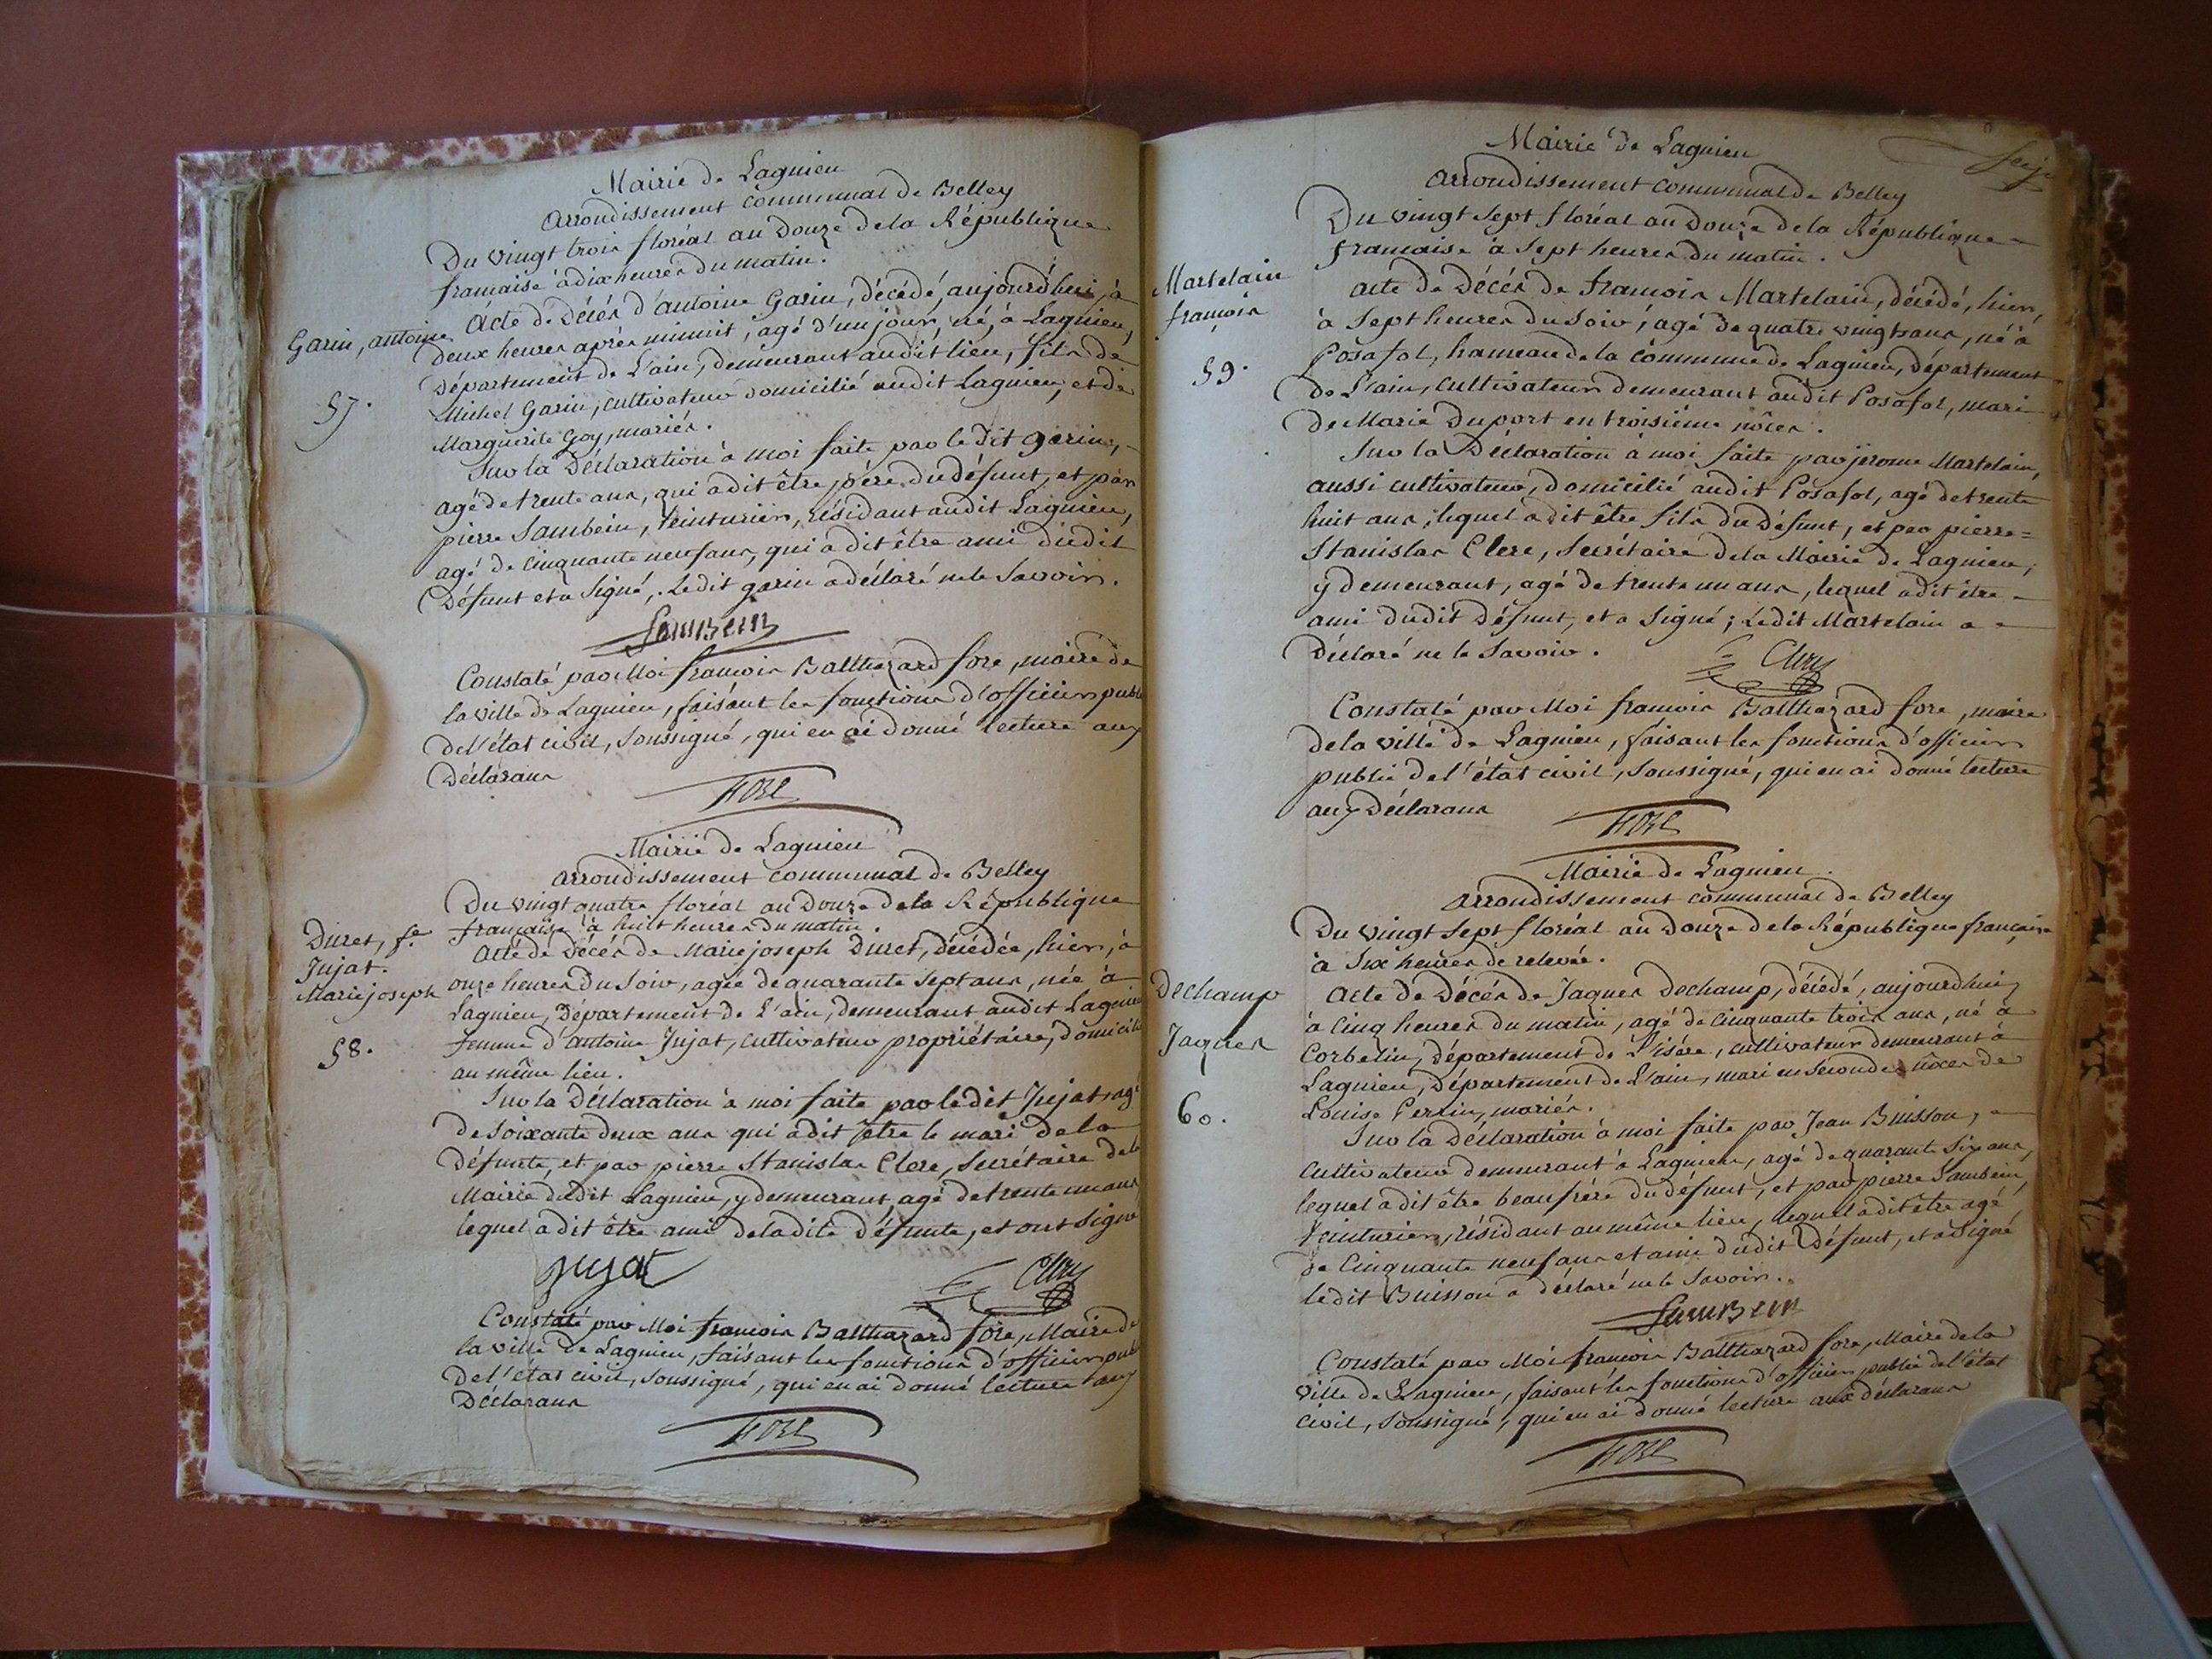 Mairie de Lagnieu
arrondissement communal de Belley
Du vingt trois floréal an douze de la République
française à dix heures du matin.
Garin, antoine
57.
Acte de Décès d'antoine Garin, décédé, aujourd'hui, à
deux heures après minuit, agé d'un jour, né, à Lagnieu,
Département de L'ain, demeurant audit lieu, fils de
Michel Garin, cultivateur domicilié audit Lagnieu, et de
Marguerite Goy, mariés.
Sur la Déclaration à moi faite par le dit garin,
agé de trente ans, qui a dit être, père du défunt, et par
pierre Sambein, teinturier, résidant audit Lagnieu,
agé de cinquante neuf ans, qui a dit être ami dudit
Défunt et a signé, Ledit garin a déclaré ne le savoir.
Sambein
Constaté par Moi françois Balthazard fore, maire de
la ville de Lagnieu, faisant les fonctions d'officier publi
de l'état civil, soussigné, qui en ai donné lecture aux
Déclarans
Fore
Mairie de Lagnieu
arrondissement communal de Belley
Du vingt quatre floréal an Douze de la République
française à huit heures du matin.
Duret, fe.
Jujat.
Marie joseph
58.
Acte de Décès de Marie joseph Duret, décédée, hier, à
onze heures du soir, agée de quarante sept ans, née à
Lagnieu, Département de L'ain, demeurant audit Lagnieu
femme d'antoine Jujat, cultivateur propriétaire, domicili
au même lieu.
Sur la Déclaration à moi faite par le dit Jujat, agé
de soixante deux ans qui a dit être le mari de la
Défunte, et par pierre Stanislas Clerc, Secrétaire de la
Mairie dudit Lagnieu, y demeurant, agé de trente un ans,
lequel a dit être ami de ladite Défunte, et ont signé
Jujat
Clerc
Constaté par Moi françois Balthazard fore, Maire de
la ville de Lagnieu, faisant les fonctions d'officier publ
de l'état civil, soussigné, qui en ai donné lecture aux
Déclarans
Fore
Mairie de Lagnieu
arrondissement communal de Belley
Du vingt sept floréal an douze de la République
française à sept heures du matin.
Martelain
françois
59.
acte de Décès de françois Martelain, décédé, hier,
à sept heures du soir, agé de quatre vingts ans, né à
Posafol, hameau de la commune de Lagnieu, département
de L'ain, cultivateur demeurant audit Posafol, mari
de Marie Duport en troisième nôces.
Sur la Déclaration à moi faite par jerome Martelain,
aussi cultivateur, domicilié audit Posafol, agé de trente
huit ans, lequel a dit être fils du Défunt, et par pierre=
Stanislas Clerc, Secrétaire de la Mairie de Lagnieu,
y demeurant, agé de trente un ans, lequel a dit être
ami dudit Défunt, et a signé; Ledit Martelain a
Déclaré ne le savoir.
Clerc
Constaté par Moi françois Balthazard fore, maire
de la ville de Lagnieu, faisant les fonctions d'officier
public de l'état civil, soussigné, qui en ai donné lecture
aux Déclarans
Fore
Mairie de Lagnieu.
arrondissement communal de Belley
Du vingt sept floréal an Douze de la République française
à six heures de relevée.
Dechamp
Jaques
60.
Acte de Décès de Jaques Dechamp, décédé, aujourdhui,
à cinq heures du matin, agé de cinquante trois ans, né à
Corbelin, département de L'isère, cultivateur demeurant à
Lagnieu, Département de L'ain, mari en secondes nôces de
Louise Perrin, mariés.
Sur la déclaration à moi faite par Jean Buisson,
cultivateur demeurant à Lagnieu, agé de quarante six ans,
lequel a dit être beaufrére du défunt, et par pierre Sambein,
teinturier, résidant au même lieu, lequel a dit être agé
de cinquante neuf ans et ami dudit Défunt, et a signé
ledit Buisson a déclaré ne le savoir.
Sambein
Constaté par Moi françois Balthazard fore, Maire de la
ville de Lagnieu, faisant les fonctions d'officier public de l'état
civil, soussigné, qui en ai donné lecture aux déclarans
Fore